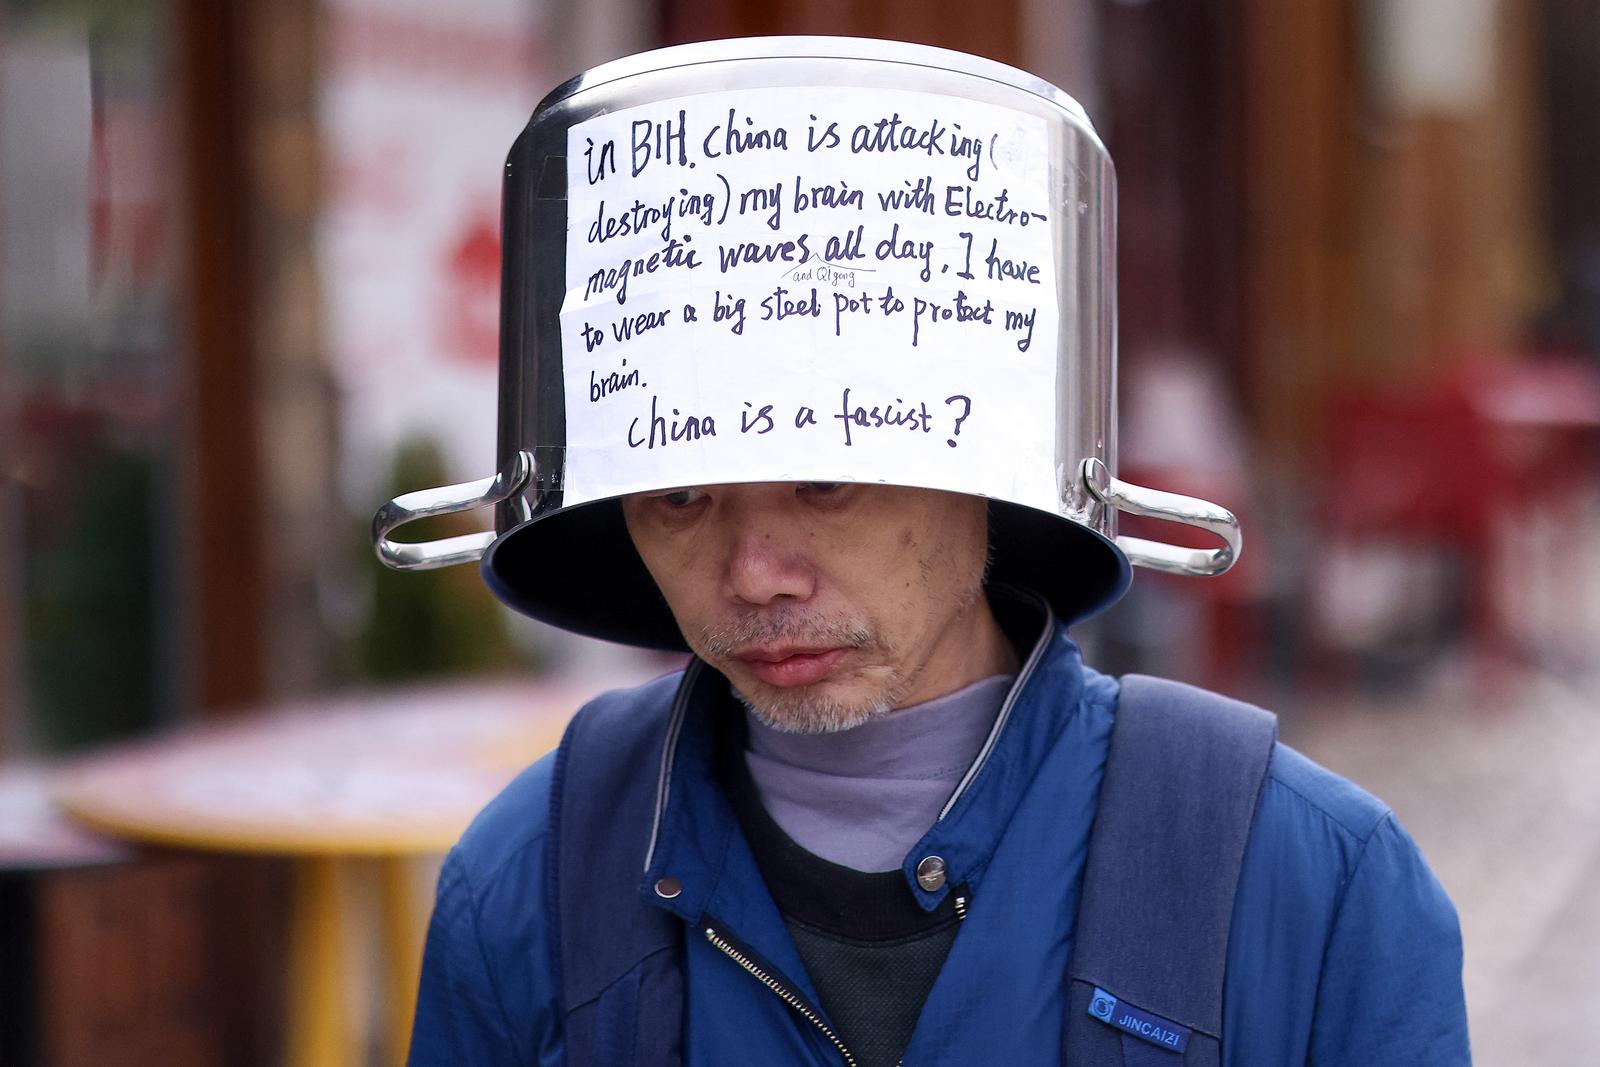 in BIH. China is attacking(
destroying) my brain with Electro-
magnetic waves all day. I have
and Qigong
to wear a big steel pot to protect my
brain.
China is a fascist?
JINCAIZI